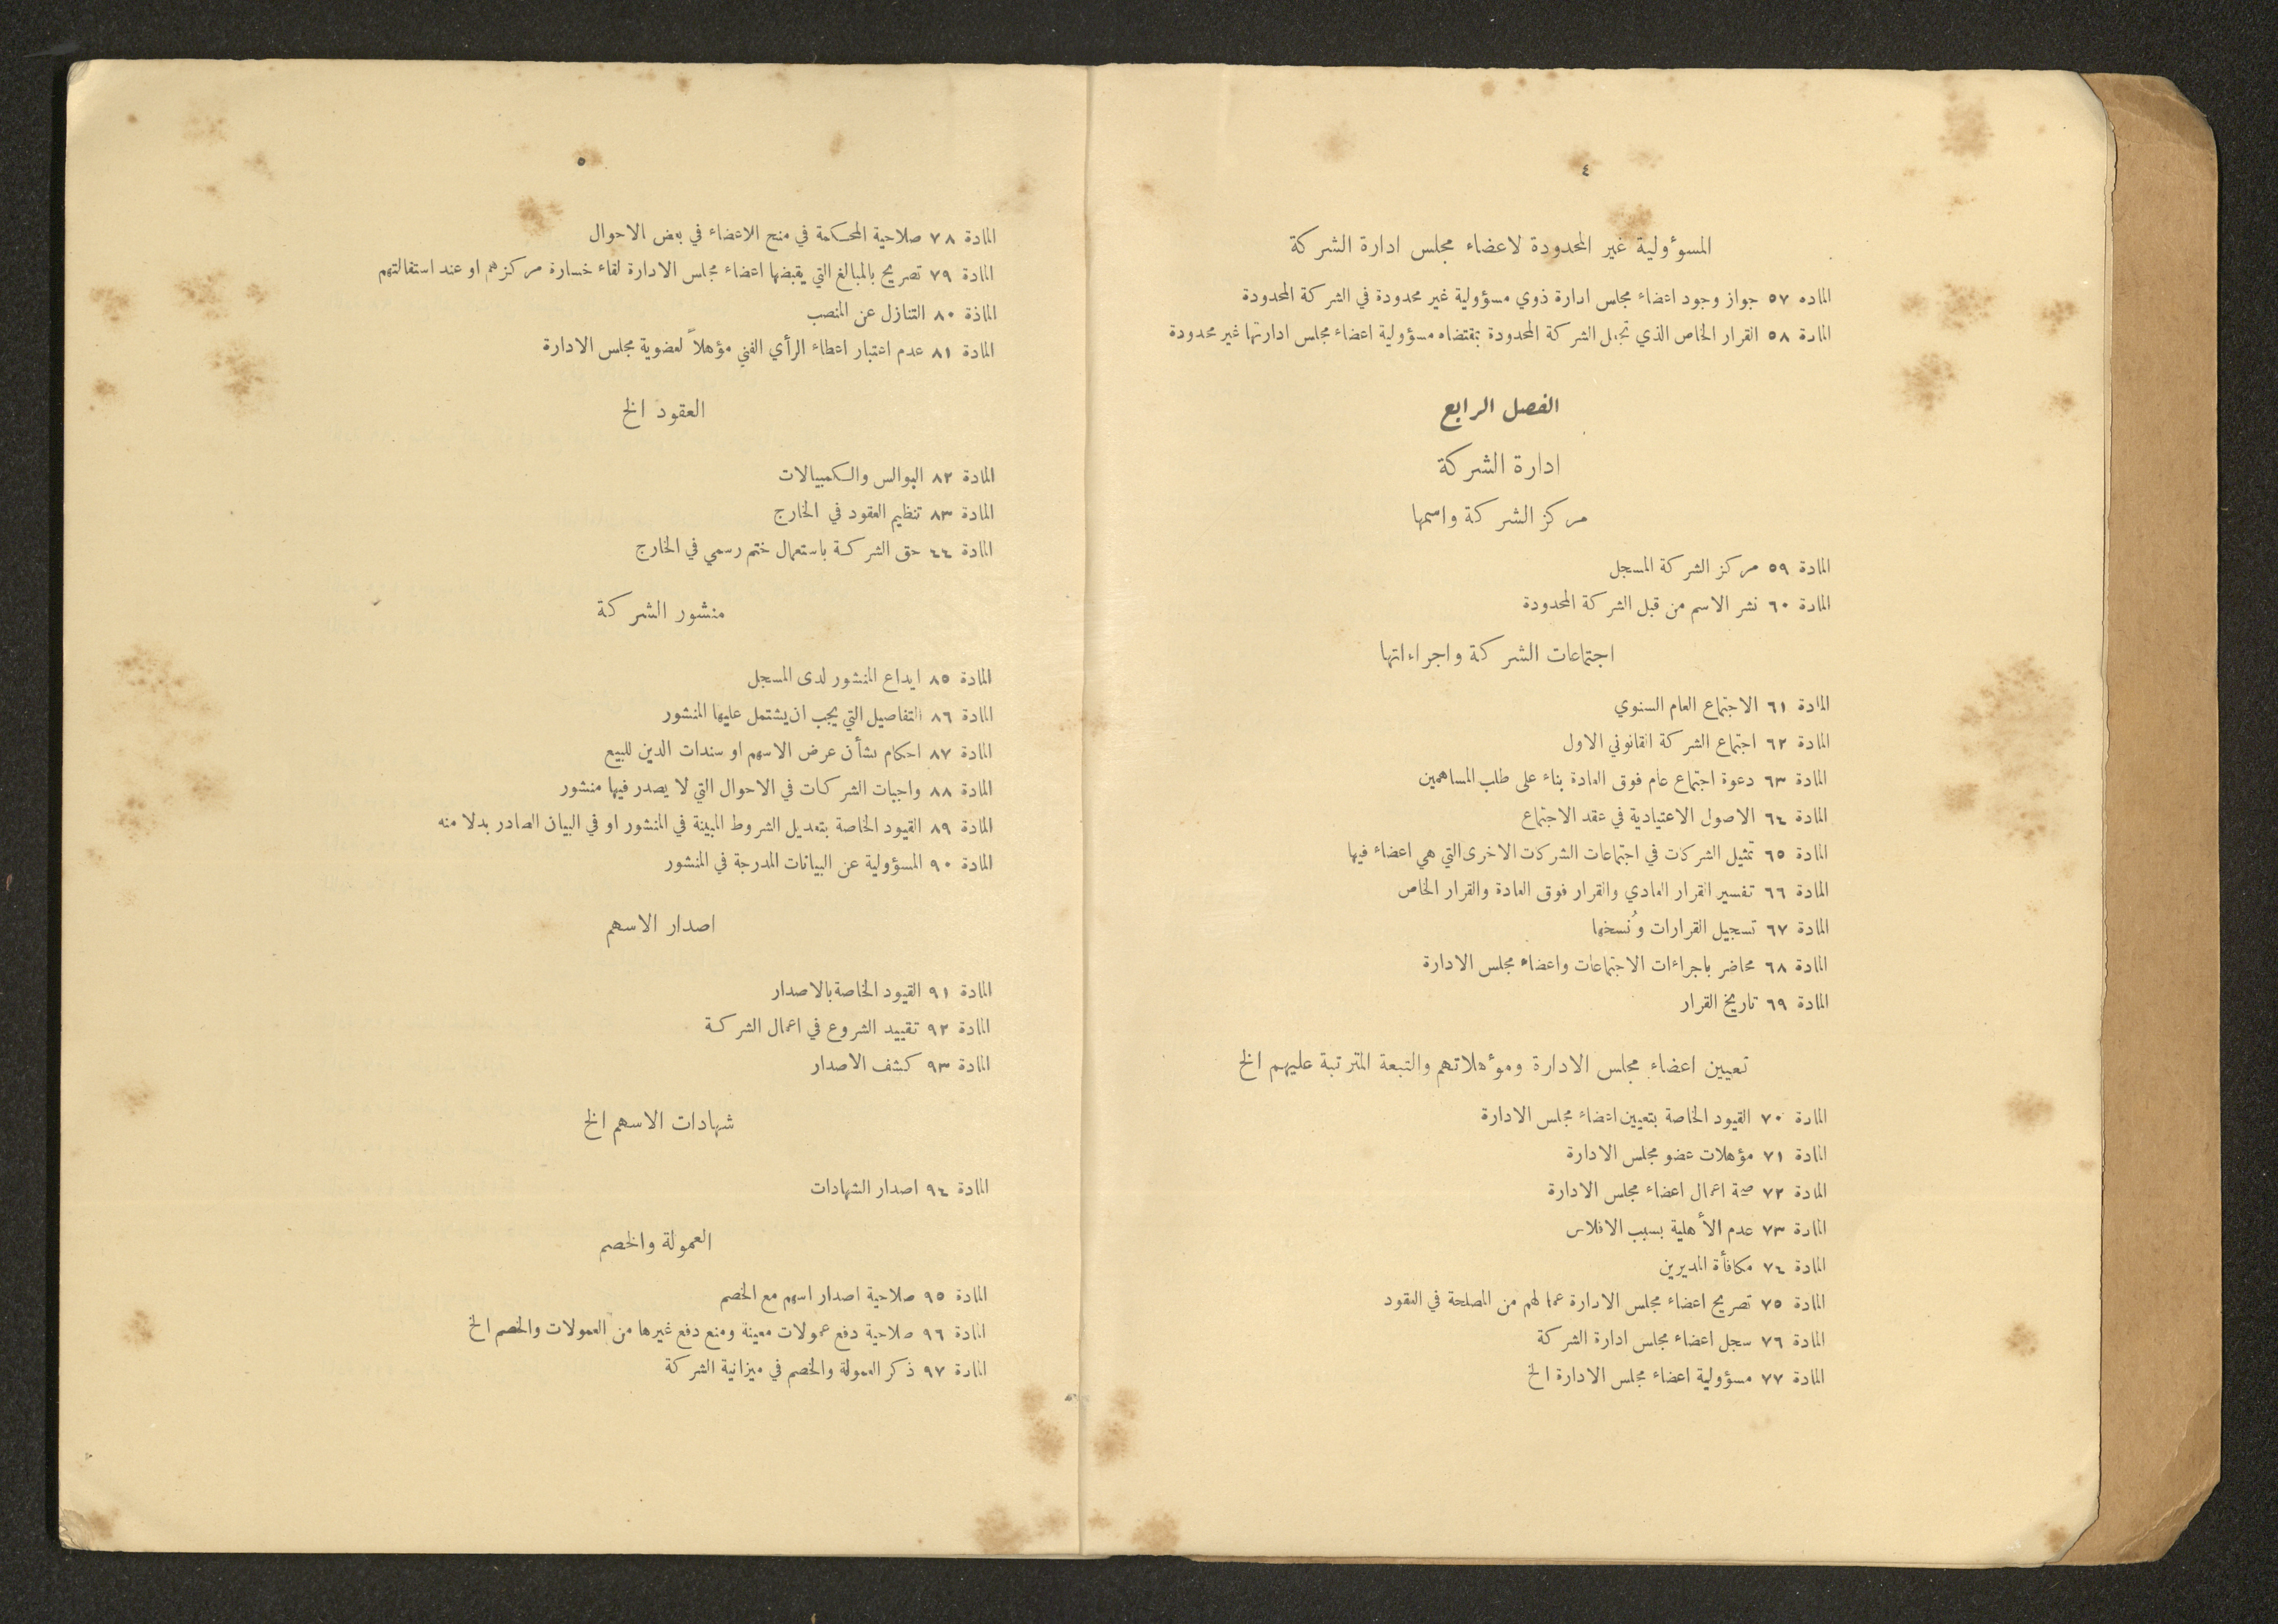 ٤
المسؤولية غير المحدودة لاعضاء مجلس ادارة الشركة
الماده ٥٧ جواز وجود اعضاء مجلس ادارة ذوي مسؤولية غير محدودة في الشركة المحدودة
المادة ٥٨ القرار الخاص الذي تجعل الشركة المحدودة بمقتضاه مسؤولية اعضاء مجلس ادارتها غير محدودة
الفصل الرابع
ادارة الشركة
مركز الشركة واسمها
المادة ٥٩ مركز الشركة المسجل
المادة ٦٠ نشر الاسم من قبل الشركة المحدودة
اجتماعات الشركة واجراءاتها
المادة ٦١ الاجتماع العام السنوي
المادة ٦٢ اجتماع الشركة القانوني الاول
المادة ٦٣ دعوة اجتماع عام فوق العادة بناء على طلب المساهمين
المادة ٦٤ الاصول الاعتيادية في عقد الاجتماع
المادة ٦٥ تمثيل الشركات في اجتماعات الشركات الاخرى التي هي اعضاء فيها
المادة ٦٦ تفسير القرار العادي والقرار فوق العادة والقرار الخاص
المادة ٦٧ تسجيل القرارات ونُسخها
المادة ٦٨ محاضر باجراءات الاجتماعات واعضاء مجلس الادارة
المادة ٦٩ تاريخ القرار
تعيين اعضاء مجلس الادارة ومؤهلاتهم والتبعة المترتبة عليهم الخ
المادة ٧٠ القيود الخاصة بتعيين اعضاء مجلس الادارة
المادة ٧١ مؤهلات عضو مجلس الادارة
المادة ٧٢ صحة اعمال اعضاء مجلس الادارة
المادة ٧٣ عدم الأهلية بسبب الافلاس
المادة ٧٤ مكافأة المديرين
المادة ٧٥ تصريح اعضاء مجلس الادارة عما لهم من المصلحة في العقود
المادة ٧٦ سجل اعضاء مجلس ادارة الشركة
المادة ٧٧ مسؤولية اعضاء مجلس الادارة الخ
٥
المادة ٧٨ صلاحية المحكمة في منح الاعضاء في بعض الاحوال
المادة ٧٩ تصريح بالمبالغ التي يقبضها اعضاء مجلس الادارة لقاء خسارة مركزهم او عند استقالتهم
الماذة ٨٠ التنازل عن المنصب
المادة ٨١ عدم اعتبار اعطاء الرأي الفني مؤهلاً لعضوية مجلس الادارة
العقود الخ
المادة ٨٢ البوالس والكمبيالات
المادة ٨٣ تنظيم العقود في الخارج
المادة ٤٤ حق الشركة باستعمال ختم رسمي في الخارج
منشور الشركة
المادة ٨٥ ايداع المنشور لدى المسجل
المادة ٨٦ التفاصيل التي يجب ان يشتمل عليها المنشور
المادة ٨٧ احكام بشأن عرض الاسهم او سندات الدين للبيع
المادة ٨٨ واجبات الشركات في الاحوال التي لا يصدر فيها منشور
المادة ٨٩ القيود الخاصة بتعديل الشروط المبينة في المنشور او في البيان الصادر بدلا منه
المادة ٩٠ المسؤولية عن البيانات المدرجة في المنشور
اصدار الاسهم
المادة ٩١ القيود الخاصة بالاصدار
المادة ٩٢ تقييد الشروع في اعمال الشركة
المادة ٩٣ كشف الاصدار
شهادات الاسهم الخ
المادة ٩٤ اصدار الشهادات
العمولة والخصم
المادة ٩٥ صلاحية اصدار اسهم مع الخصم
المادة ٩٦ صلاحية دفع عمولات معينة ومنع دفع غيرها من العمولات والخصم الخ
المادة ٩٧ ذكر العمولة والخصم في ميزانية الشركة